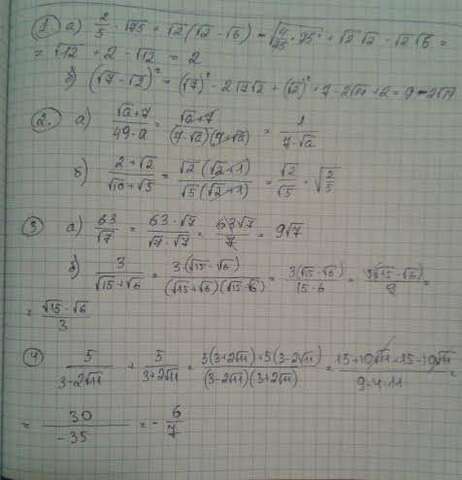 ① а) 2/5 · √75 + √2(√2 - √6) = √(4/25 · 75) + √2√2 - √2√6 =
= √12 + 2 - √12 = 2
б) (√7 - √2)² = (√7)² - 2√7√2 + (√2)² = 7 - 2√14 + 2 = 9 - 2√14
② а) (√a + 7)/(49 - a) = (√a + 7)/((7 - √a)(7 + √a)) = 1/(7 - √a)
б) (2 + √2)/(√10 + √5) = √2(√2 + 1)/(√5(√2 + 1)) = √2/√5 = √(2/5)
③ а) 63/√7 = 63 · √7/(√7 · √7) = 63√7/7 = 9√7
б) 3/(√15 + √6) = 3(√15 - √6)/((√15 + √6)(√15 - √6)) = 3(√15 - √6)/(15 - 6) = 3(√15 - √6)/9 =
= (√15 - √6)/3
④ 5/(3 - 2√11) + 5/(3 + 2√11) = (5(3 + 2√11) + 5(3 - 2√11))/((3 - 2√11)(3 + 2√11)) = (15 + 10√11 + 15 - 10√11)/(9 - 4 · 11) =
= 30/-35 = - 6/7